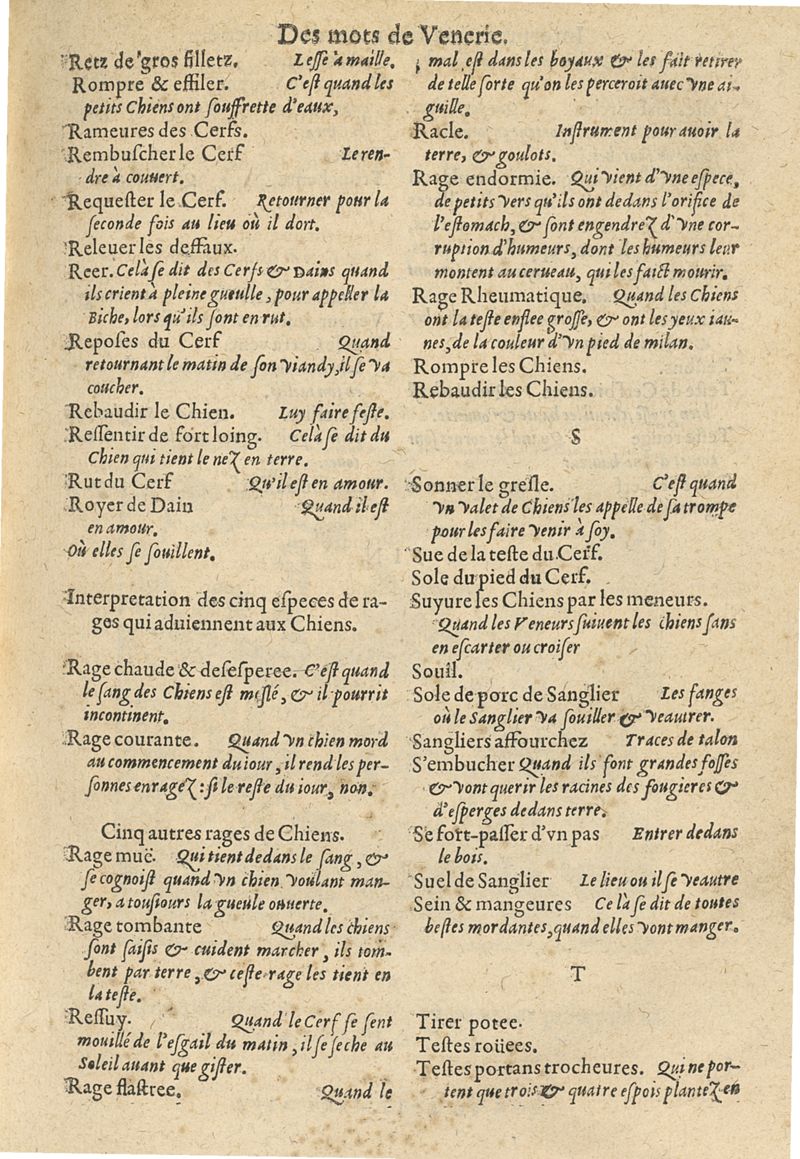 Des mots de Venerie.
Retz de gros filletz. Lesse à maille.
Rompre & effiler. C'est quand les
petits Chiens ont souffrette d'eaux,
Rameures des Cerfs.
Rembuscher le Cerf Le ren-
dre à couuert.
Requester le Cerf. Retourner pour la
seconde fois au lieu où il dort.
Releuer les deffaux.
Reer. Celà se dit des Cerfs & Dains quand
ils crient à pleine gueulle, pour appeller la
Biche, lors qu'ils sont en rut.
Reposes du Cerf Quand
retournant le matin de son viandy, il se va
coucher.
Rebaudir le Chien. Luy faire feste.
Ressentir de fort loing. Celà se dit du
Chien qui tient le nez en terre.
Rut du Cerf Qu'il est en amour.
Royer de Dain Quand il est
en amour.
Où elles se souillent.
Interpretation des cinq especes de ra-
ges qui aduiennent aux Chiens.
Rage chaude & desesperee. C'est quand
le sang des Chiens est meslé, & il pourrit
incontinent.
Rage courante. Quand vn chien mord
au commencement du iour, il rend les per-
sonnes enragez: si le reste du iour, non.
Cinq autres rages de Chiens.
Rage muë. Qui tient dedans le sang, &
se cognoist quand vn chien voulant man-
ger, a tousiours la gueule ouuerte.
Rage tombante Quand les chiens
sont saisis & cuident marcher, ils tom-
bent par terre, & ceste rage les tient en
la teste.
Ressuy. Quand le Cerf se sent
mouillé de l'esgail du matin, il se seche au
Soleil auant que gister.
Rage flastree. Quand le
mal est dans les boyaux & les fait retirer
de telle sorte qu'on les perceroit auec vne ai-
guille.
Racle. Instrument pour auoir la
terre, & goulots.
Rage endormie. Qui vient d'vne espece,
de petits vers qu'ils ont dedans l'orifice de
l'estomach, & sont engendrez d'vne cor-
ruption d'humeurs, dont les humeurs leur
montent au cerueau, qui les faict mourir.
Rage Rheumatique. Quand les Chiens
ont la teste enflee grosse, & ont les yeux iau-
nes, de la couleur d'vn pied de milan.
Rompre les Chiens.
Rebaudir les Chiens.
S
Sonner le gresle. C'est quand
vn valet de Chiens les appelle de sa trompe
pour les faire venir à soy.
Sue de la teste du Cerf.
Sole du pied du Cerf.
Suyure les Chiens par les meneurs.
Quand les Veneurs suiuent les chiens sans
en escarter ou croiser
Souil.
Sole de porc de Sanglier Les fanges
où le Sanglier va souiller & veautrer.
Sangliers affourchez Traces de talon
S'embucher Quand ils font grandes fosses
& vont querir les racines des fougieres &
d'esperges dedans terre.
Se fort-passer d'vn pas Entrer dedans
le bois.
Suel de Sanglier Le lieu ou il se veautre
Sein & mangeures Ce là se dit de toutes
bestes mordantes, quand elles vont manger.
T
Tirer potee.
Testes roüees.
Testes portans trocheures. Qui ne por-
tent que trois & quatre espois plantez en